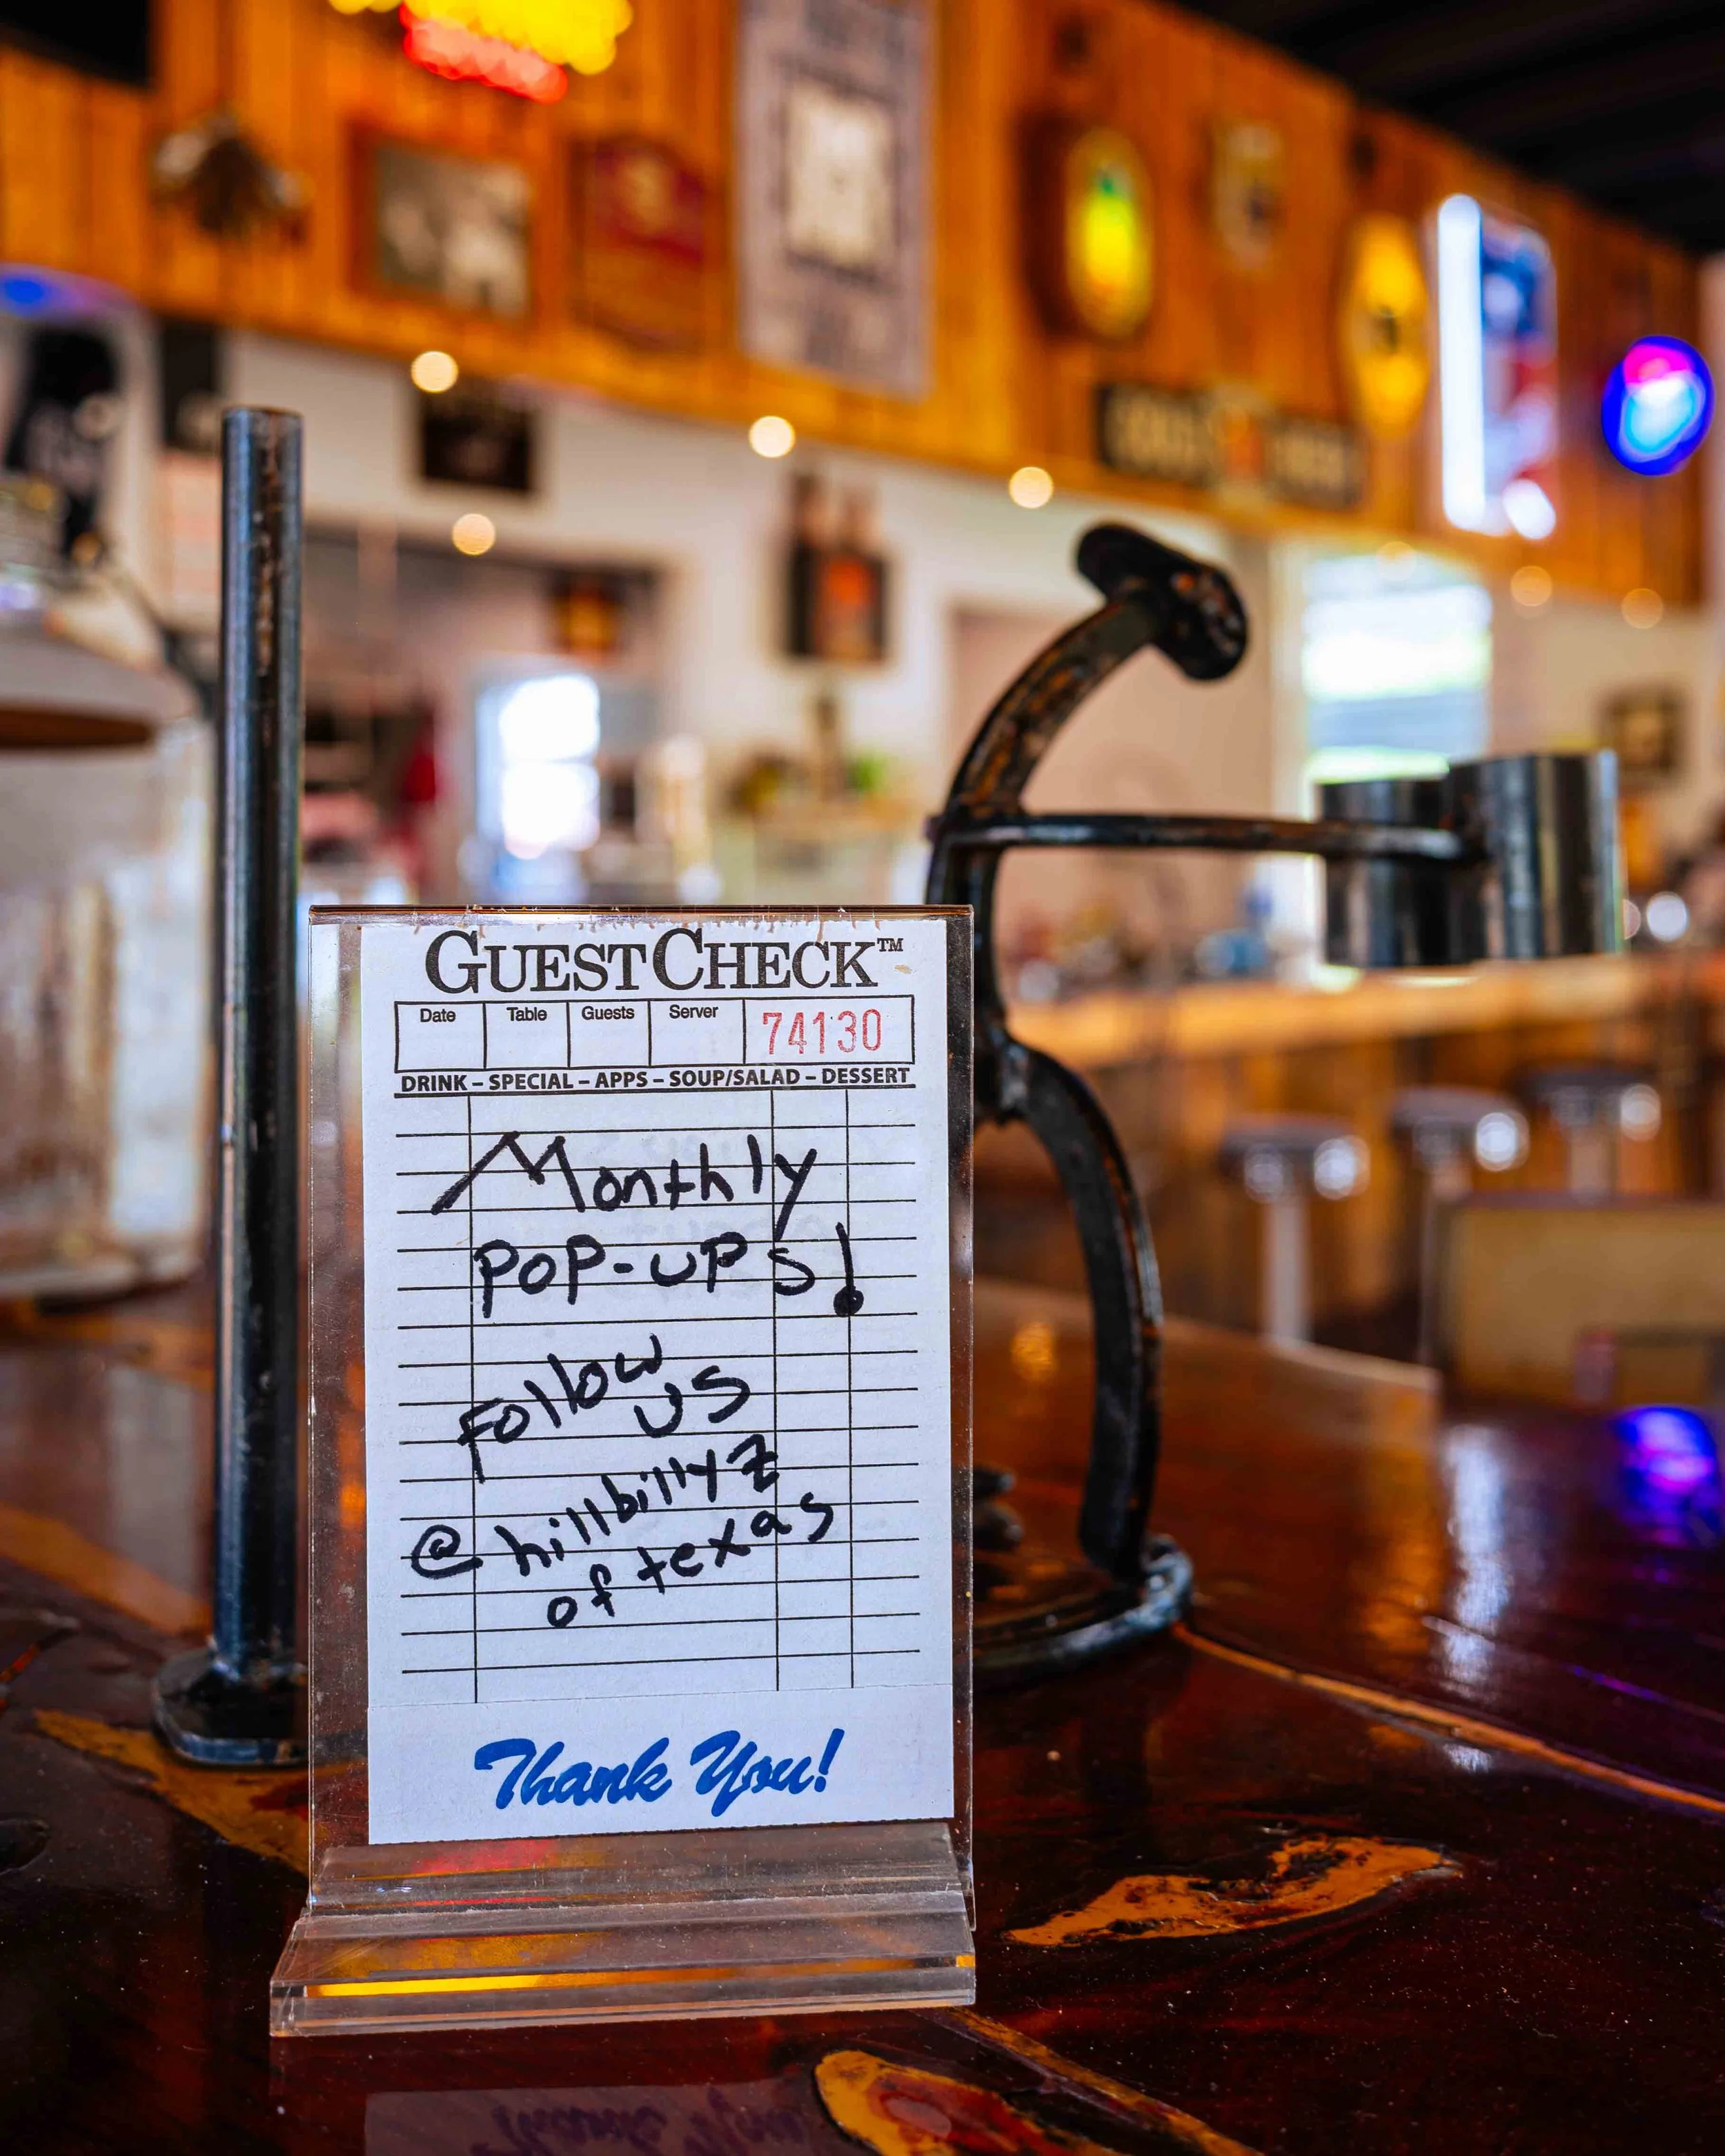 GUESTCHECK™
Date Table Guests Server 74130
DRINK – SPECIAL – APPS – SOUP/SALAD – DESSERT
Monthly
POP-UPS!
Follow
US
@hillbillyz
of texas
Thank You!